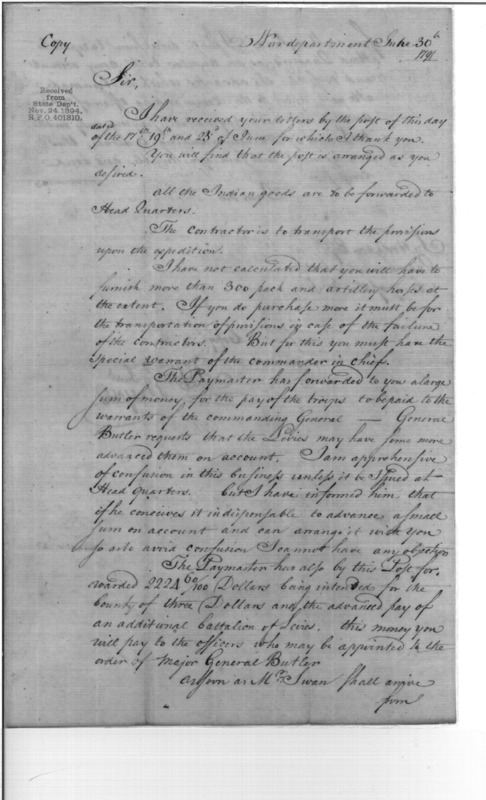 Copy
War department June 30th
1791
Received
from
State Dep't.
Nov. 24. 1894.
R.P.O. 401810.
Sir,
I have received your letters by the post of this day
dated
of the 17th 19th and 23d of June for which I thank you.
You will find that the post is arranged as you
desired.
All the Indian goods are to be forwarded to
Head Quarters.
The Contractor is to transport the provisions
upon the expedition.
I have not calculated that you will have to
furnish more than 300 pack and artillery horses at
the extent. If you do purchase more it must be for
the transportation of provisions in case of the failure
of the contractors. But for this you must have the
special warrant of the commander in chief.
The Paymaster has forwarded to you a large
sum of money, for the pay of the troops to be paid to the
warrants of the commanding General — General
Butler requests that the Levies may have some more
advanced them on account. I am apprehensive
of confusion in this business unless it be issued at
Head quarters. but I have informed him that
if he conceives it indispensable to advance a small
sum on account and can arrange it with you
so as to avoid confusion I cannot have any objection
The Paymaster has also by this Post for,
warded 2224 60/100 Dollars being intended for the
bounty of three Dollars and the advanced pay of
an additional battalion of Levies. this money you
will pay to the officers who may be appointed to the
order of Major General Butler
As soon as Mr. Swan shall arrive
from